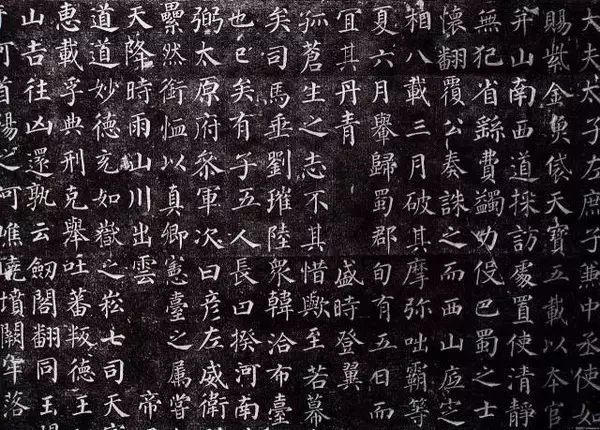 大夫太子左庶子兼中丞使如
賜紫金魚袋天寶五載以本官
并山南西道採訪處置使清靜
無犯省繇費蠲力役巴蜀之士
懷翻覆公奏誅之而西山底定
相八載三月破其摩弥咄霸等
夏六月轝歸蜀郡旬有五日而
宜其丹青 盛時登翼
孤蒼生之志不其惜歟至若幕
矣司馬垂劉璀陸衆韓洽布臺
也已矣有子五人長曰揆河南
弼太原府叅軍次曰彦左威衛
纍然銜恤以真卿憲臺之属嘗
天降時雨山川出雲 帝
道道妙德充如嶽之崧七司天
惠載孚典刑克舉吐蕃叛德王
山吉往凶還孰云劒閣翻同玉
可首陽之阿噍嶢墳闕牢落